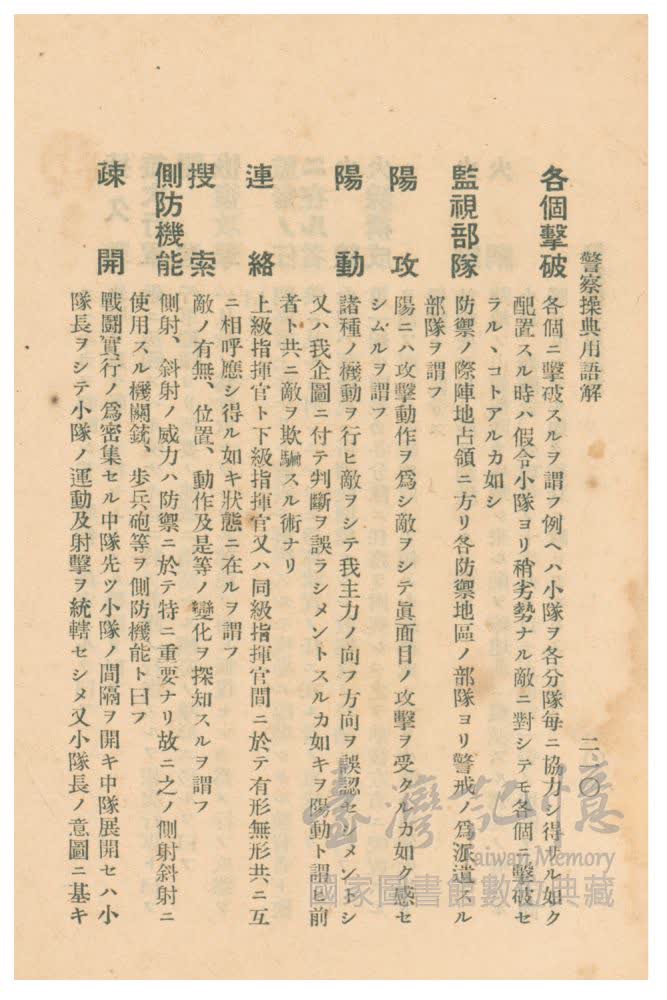 警察操典用語解
二〇
各個擊破
各個ニ擊破スルヲ謂フ例ヘハ小隊ヲ各分隊每ニ協力シ得サル如ク
配置スル時ハ假令小隊ヨリ稍劣勢ナル敵ニ對シテモ各個ニ擊破セ
ラルヽコトアルカ如シ
監視部隊
防禦ノ際陣地占領ニ方リ各防禦地區ノ部隊ヨリ警戒ノ爲派遣スル
部隊ヲ謂フ
陽攻
陽ニハ攻擊動作ヲ爲シ敵ヲシテ眞面目ノ攻擊ヲ受クルカ如ク感セ
シムルヲ謂フ
陽動
諸種ノ機動ヲ行ヒ敵ヲシテ我主力ノ向フ方向ヲ誤認セシメントシ
又ハ我企圖ニ付テ判斷ヲ誤ラシメントスルカ如キヲ陽動ト謂ヒ前
者ト共ニ敵ヲ欺騙スル術ナリ
連絡
上級指揮官ト下級指揮官又ハ同級指揮官間ニ於テ有形無形共ニ互
ニ相呼應シ得ル如キ狀態ニ在ルヲ謂フ
搜索
敵ノ有無、位置、動作及是等ノ變化ヲ探知スルヲ謂フ
側防機能
側射、斜射ノ威力ハ防禦ニ於テ特ニ重要ナリ故ニ之ノ側射斜射ニ
使用スル機關銃、步兵砲等ヲ側防機能ト曰フ
疎開
戰鬪實行ノ爲密集セル中隊先ツ小隊ノ間隔ヲ開キ中隊展開セハ小
隊長ヲシテ小隊ノ運動及射擊ヲ統轄セシメ又小隊長ノ意圖ニ基キ
臺灣記憶
Taiwan Memory
國家圖書館數位典藏